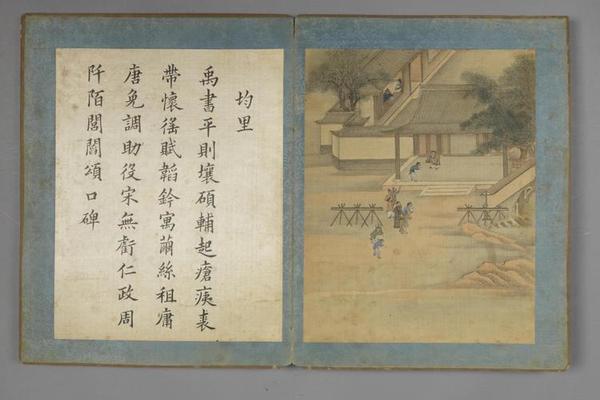 均里
禹書平則壤碩輔起瘡痍裘
帶懷徭賦韜鈐寓繭絲租庸
唐免調助役宋無仁政周
阡陌閭閻頌口碑